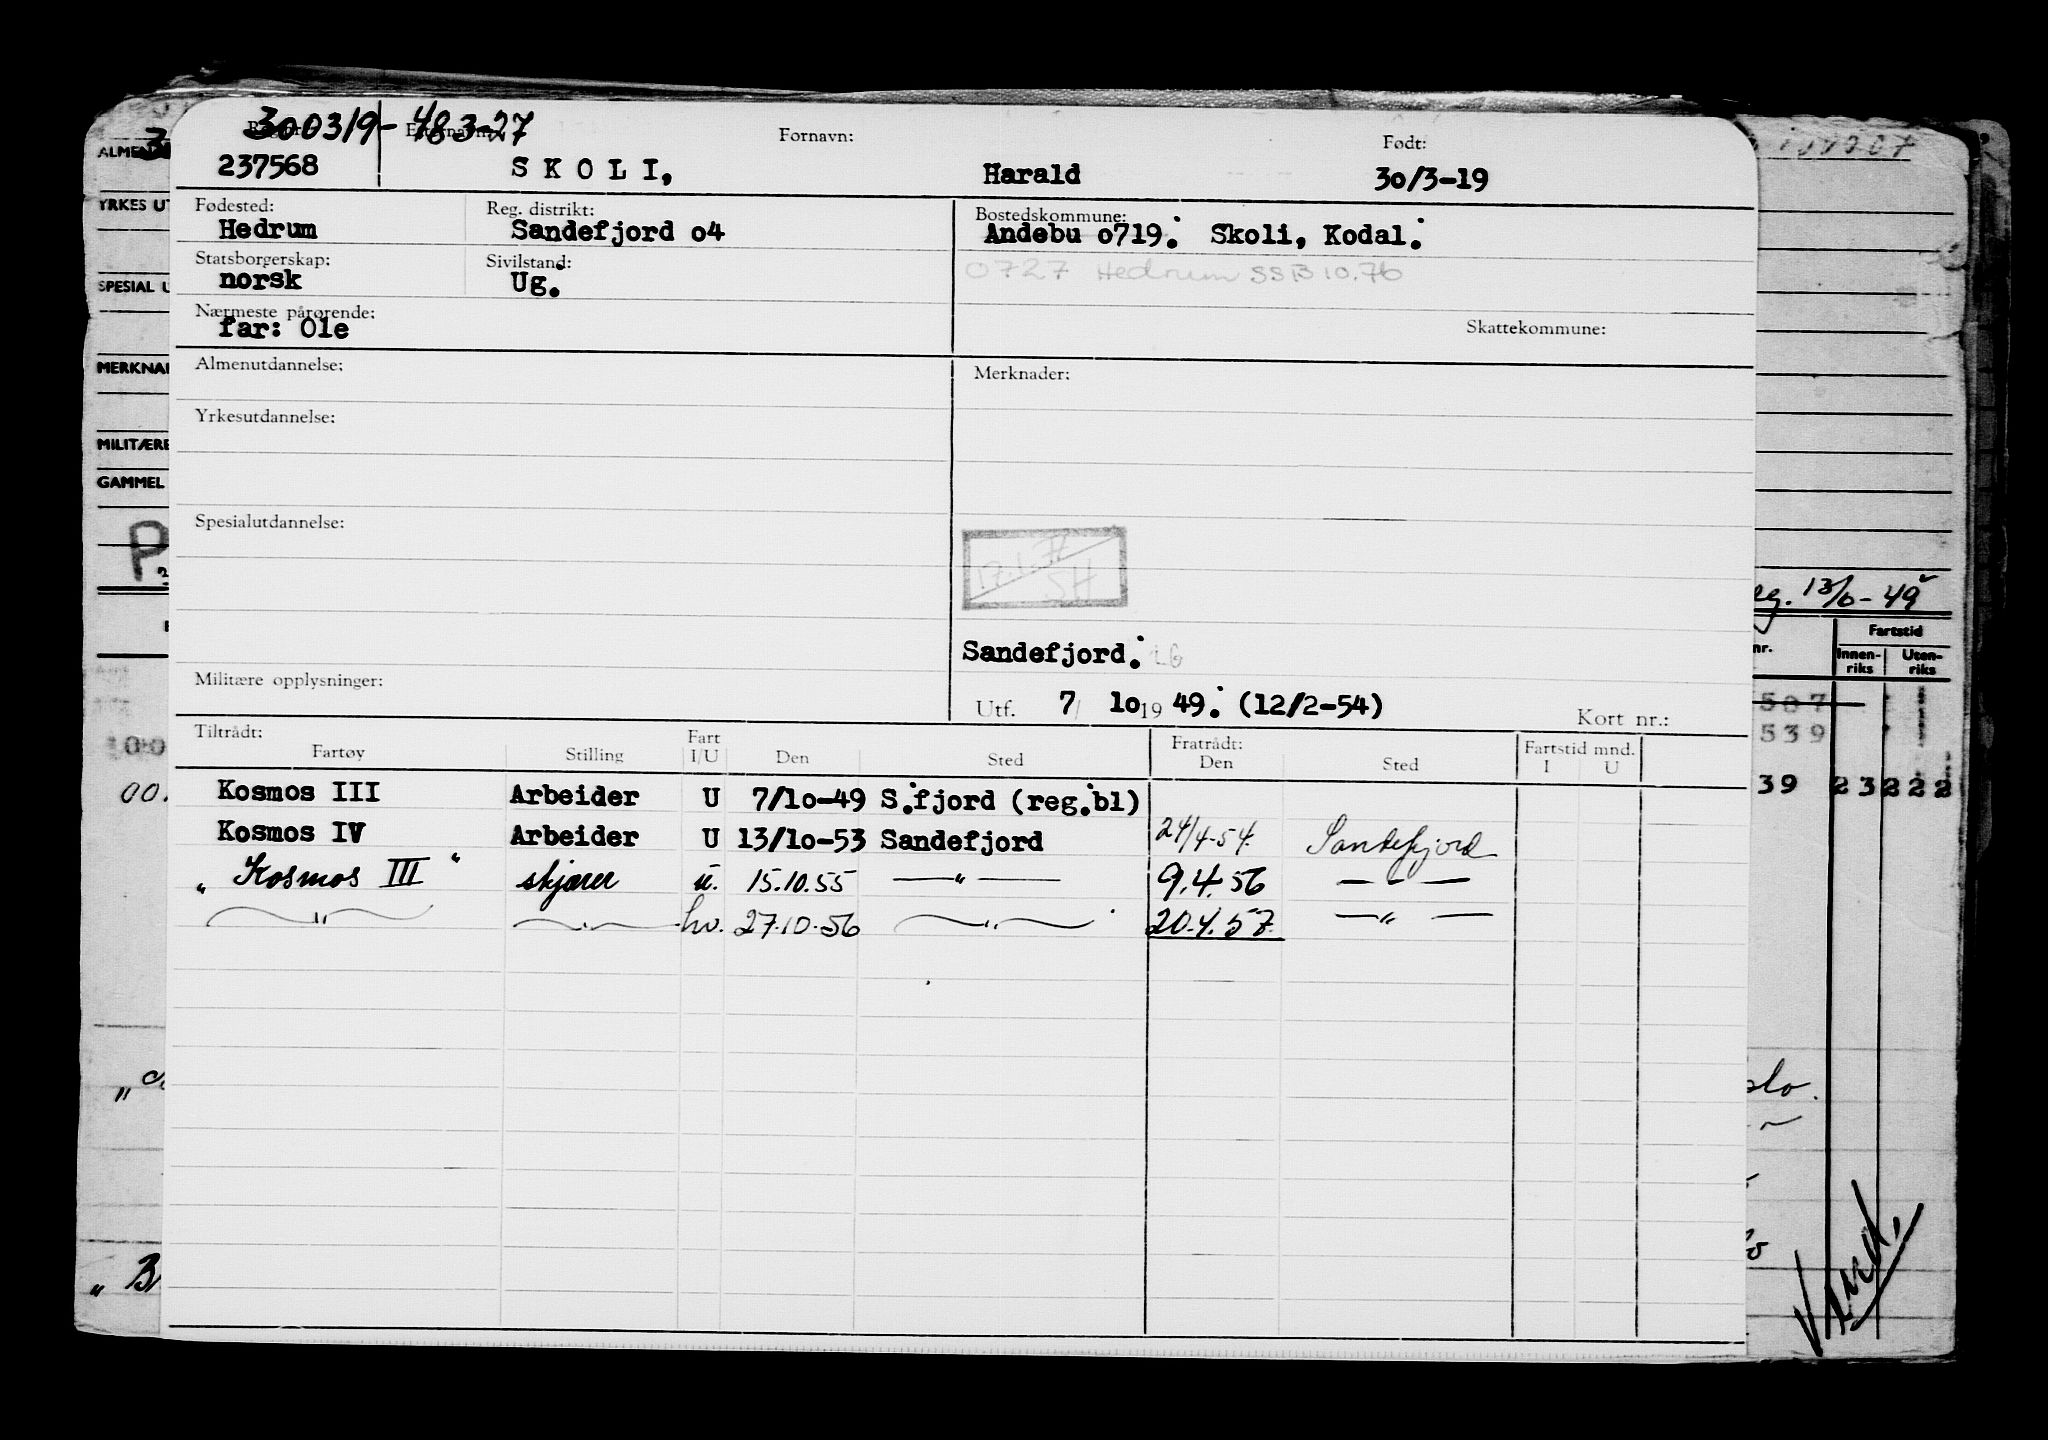 300319-48327
Etternavn: Fornavn: Født:
237568 SKOLI, Harald 30/3-19
Fødested: Reg. distrikt: Bostedskommune:
Hedrum Sandefjord o4 Andebu o719. Skoli, Kodal.
Statsborgerskap: Sivilstand: 0727 Hedrum SSB 10.76
norsk Ug.
Nærmeste pårørende: Skattekommune:
far: Ole
Almenutdannelse: Merknader:
Yrkesutdannelse:
Spesialutdannelse:
SH
Sandefjord.
Militære opplysninger:
Utf. 7/ 1o 19 49. (12/2-54) Kort nr.:
Tiltrådt: Fratrådt: Fartstid mnd.
Fartøy Stilling Fart I/U Den Sted Den Sted I U
Kosmos III Arbeider U 7/1o-49 S.fjord (reg.bl)
Kosmos IV Arbeider U 13/1o-53 Sandefjord 24/4-54. Sandefjord
„Kosmos III" skjærer u. 15.10.55 —"— 9.4.56 —"—
—"— —"— hv. 27.10.56 —"— 20.4.57. —"—
ALMEN
YRKES UT
SPESIAL U
MERKNA
MILITÆRE
GAMMEL
P
eg. 13/6-49
nr. Fartstid
Innen-riks Uten-riks
507
539
39 23 222